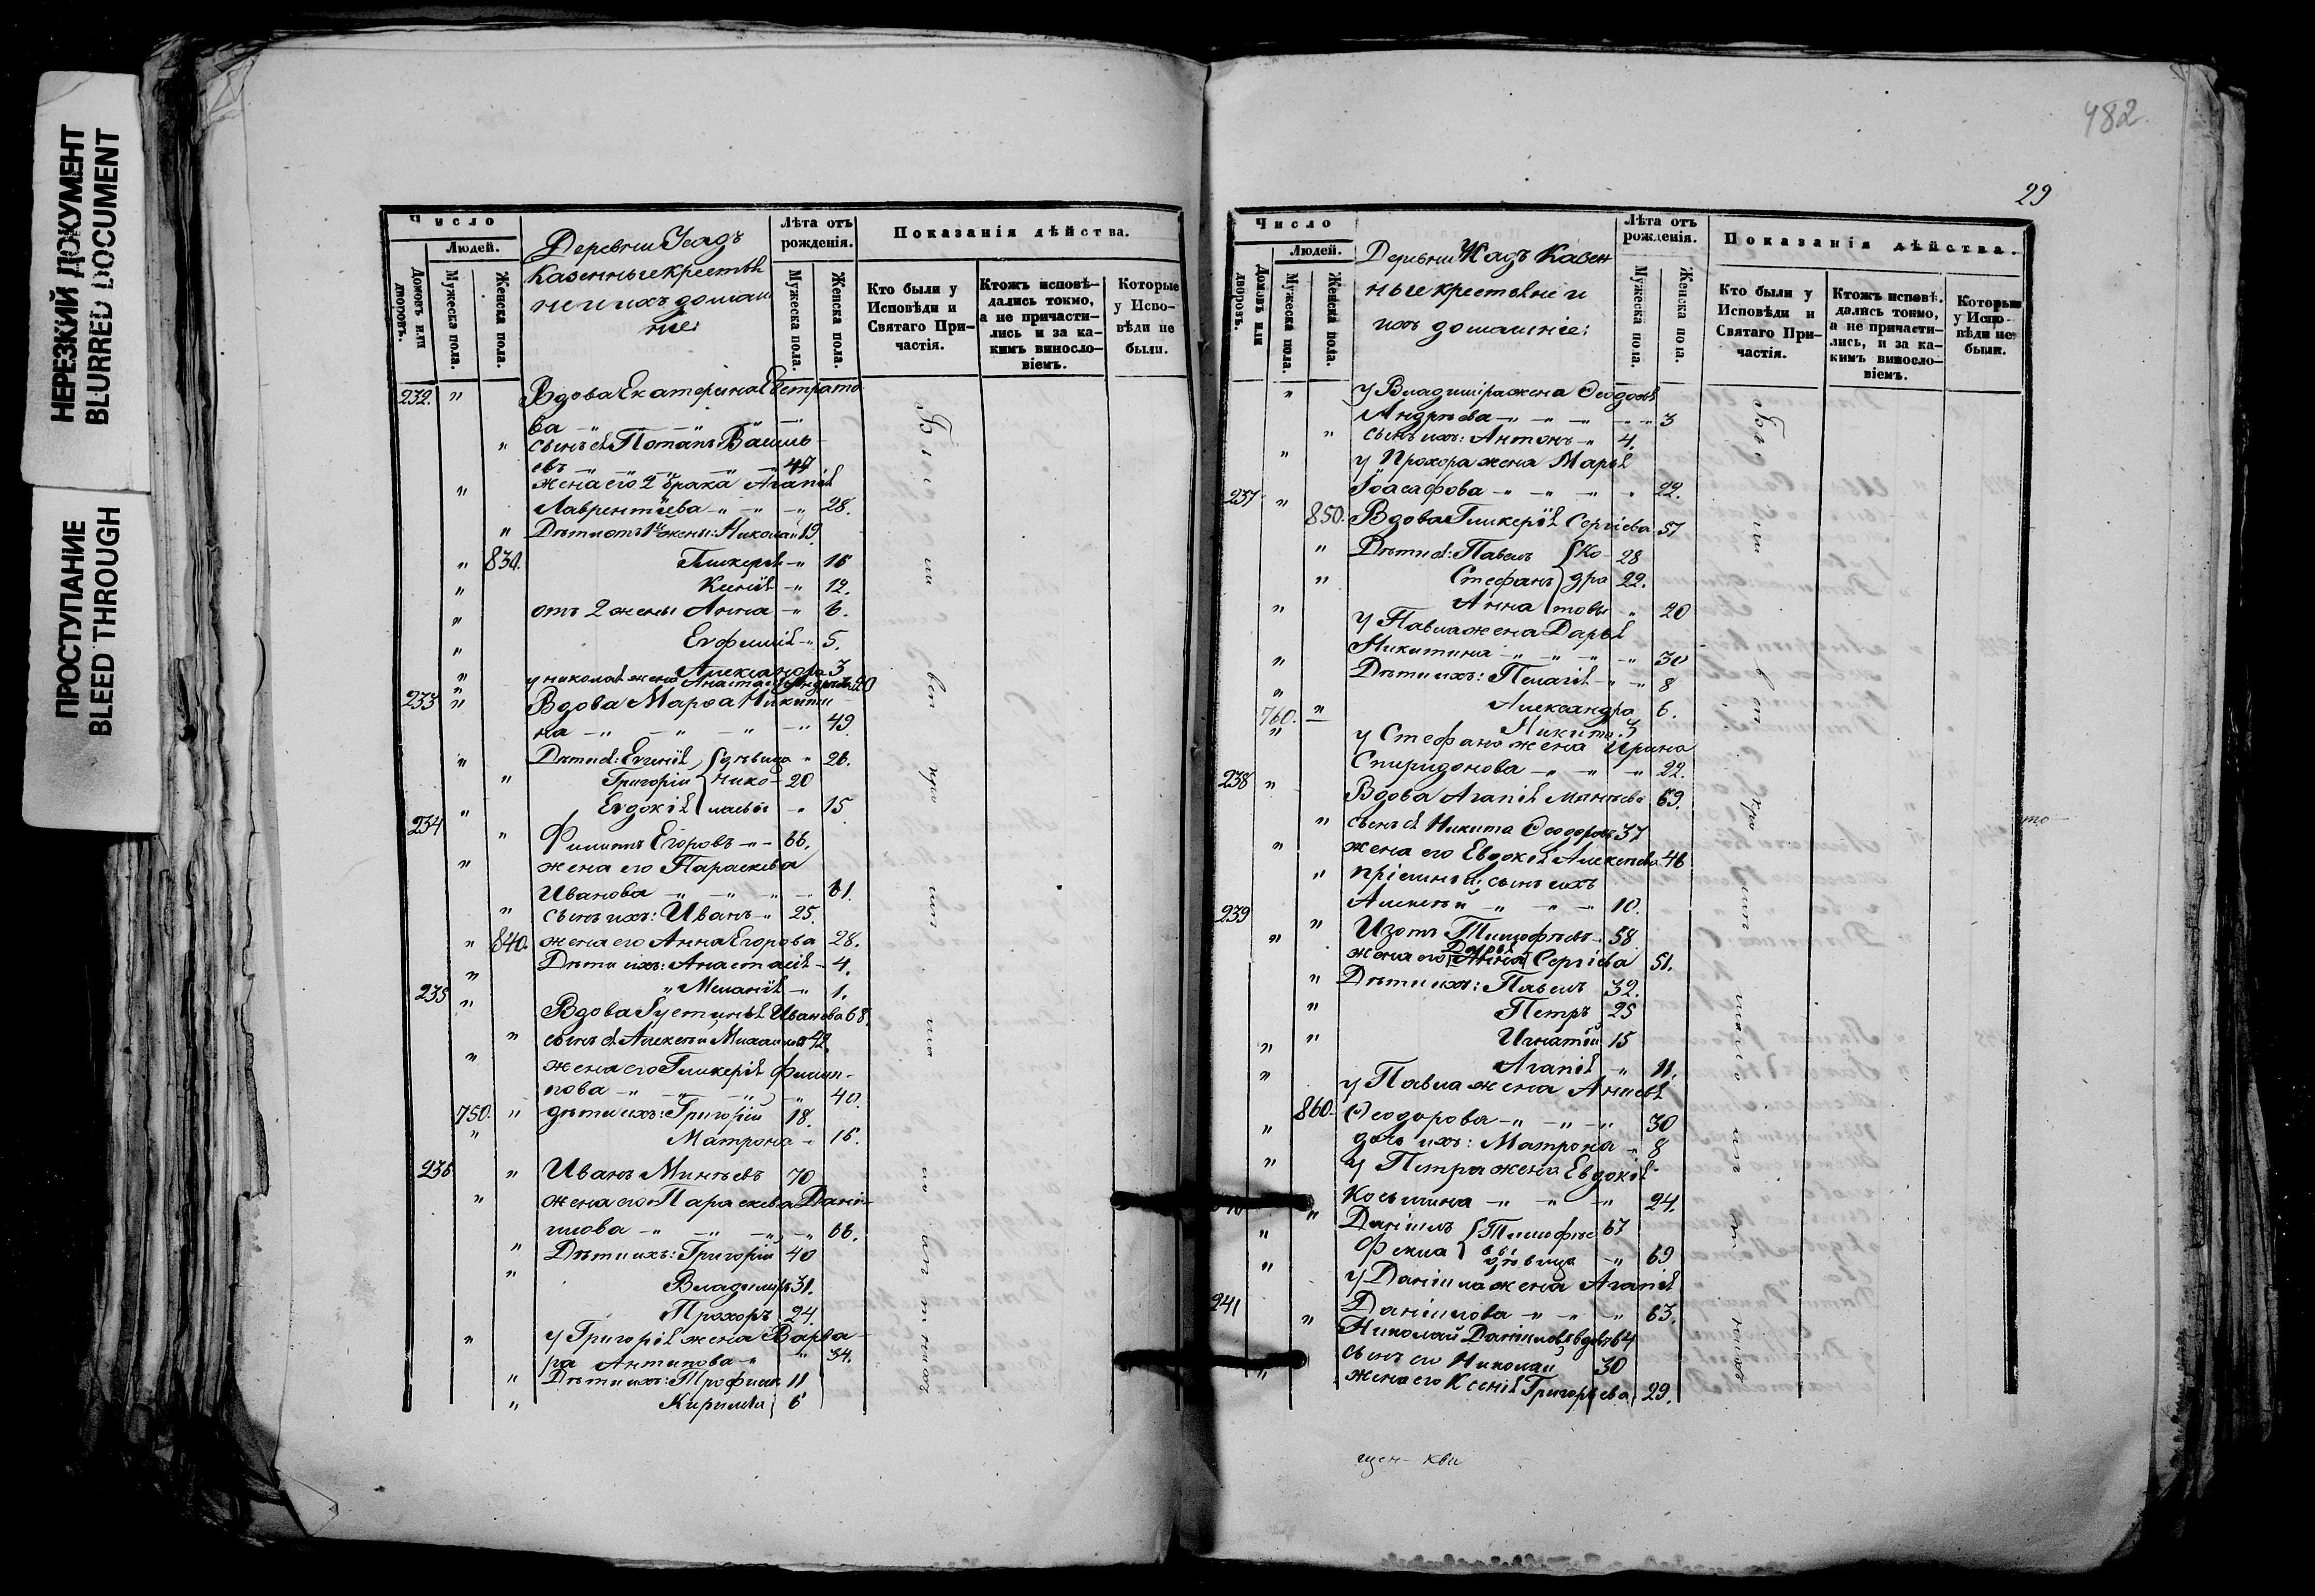 НЕРЕЗКИЙ ДОКУМЕНТ
BLURRED DOCUMENT
ПРОСТУПАНИЕ
BLEED THROUGH
Число
Людей.
Домовъ или дворовъ.
Мужеска пола.
Женска пола.
Деревни
казенные крестья
не и ихъ домаш
ніе:
Лѣта отъ рожденія.
Мужеска пола.
Женска пола.
Показанія дѣйства.
Кто были у Исповѣди и Святаго Причастія.
Ктожъ исповѣдались токмо, а не причастились и за какимъ винословіемъ.
Которые у Исповѣди не были.
232. " Вдова Екатерина Евстрато
ва
" сынъ ея Потапъ Василь
евъ 47
" жена его 2 брака Агапія
Лаврентіева 28.
" Дѣти отъ 1й жены: Николай 19.
" 830. Гликерія 16
" Ксенія 12.
" отъ 2 жены Анна 6.
" Евфимія 5.
" Александра 3
" у Николая жена Анастасія 20
233 " Вдова Марѳа Никити
на 49.
" Дѣти ея: Евгенія дѣвица 26.
" Григорій Нико 20
" Евдокія лаевы 15
234 " Филиппъ Егоровъ 66.
" жена его Параскева
Иванова 61.
" сынъ ихъ: Иванъ 25.
" 840. жена его Анна Егорова 28.
" Дѣти ихъ: Анастасія 4.
" Меланія 1.
235 " Вдова Іустинья Иванова 68.
" сынъ ея Алексѣй Михайловъ 42.
" жена его Гликерія Филип-
пова 40.
750. " дѣти ихъ: Григорій 18.
" Матрона 16.
236 " Иванъ Минѣевъ 70
" жена его Параскева Дані-
илова 66.
" Дѣти ихъ: Григорій 40
" Владиміръ 31.
Прохоръ 24.
" у Григорія жена Варва-
ра Антипова 34.
" Дѣти ихъ: Трофимъ 11
" Кириллъ 6
482.
29
Число
Людей.
Домовъ или дворовъ.
Мужеска пола.
Женска пола.
Деревни Казен
ные крестьяне и
ихъ домашніе:
Лѣта отъ рожденія.
Мужеска пола.
Женска пола.
Показанія дѣйства.
Кто были у Исповѣди и Святаго Причастія.
Ктожъ исповѣдались токмо, а не причастились, и за какимъ винословіемъ.
Которые у Исповѣди не были.
" у Владиміра жена
Андрѣева 3
" сынъ ихъ: Антонъ 4.
" у Прохора жена Марья
Іоасафова 22.
237 " 850. Вдова Гликерія Сергіева 57
" Дѣти ея: Павелъ Ко- 28
" Стефанъ дра 22.
" Анна товы 20
у Павла жена Дарья
Никитина 30
" Дѣти ихъ: Пелагія 8
" Александра 6.
760. " Никита 3
" у Стефана жена Ирина
Спиридонова 22.
238 " Вдова Агапія Минѣева 69.
" сынъ ея Никита Ѳеодоровъ 37
" жена его Евдокія Алексѣева 46
" пріемный сынъ ихъ
Алексѣй 10.
239 " Изотъ Тимофѣевъ 58
" жена его Дарья Сергіева 51.
" Дѣти ихъ: Павелъ 32.
" Петръ 25
" Игнатій 15
" Агапія 11.
" у Павла жена
860 Ѳеодорова 30
" дочь ихъ: Матрона 8
" у Петра жена Евдокія
Косьмина 24.
" Даніилъ Тимофѣе 67
" Фекла вы дѣвица 69
" у Даніила жена Агапія
Даніилова 63.
241 " Николай Даніиловъ вдовъ 64
сынъ его Николай 30
" жена его Ксенія Григорьева 29.